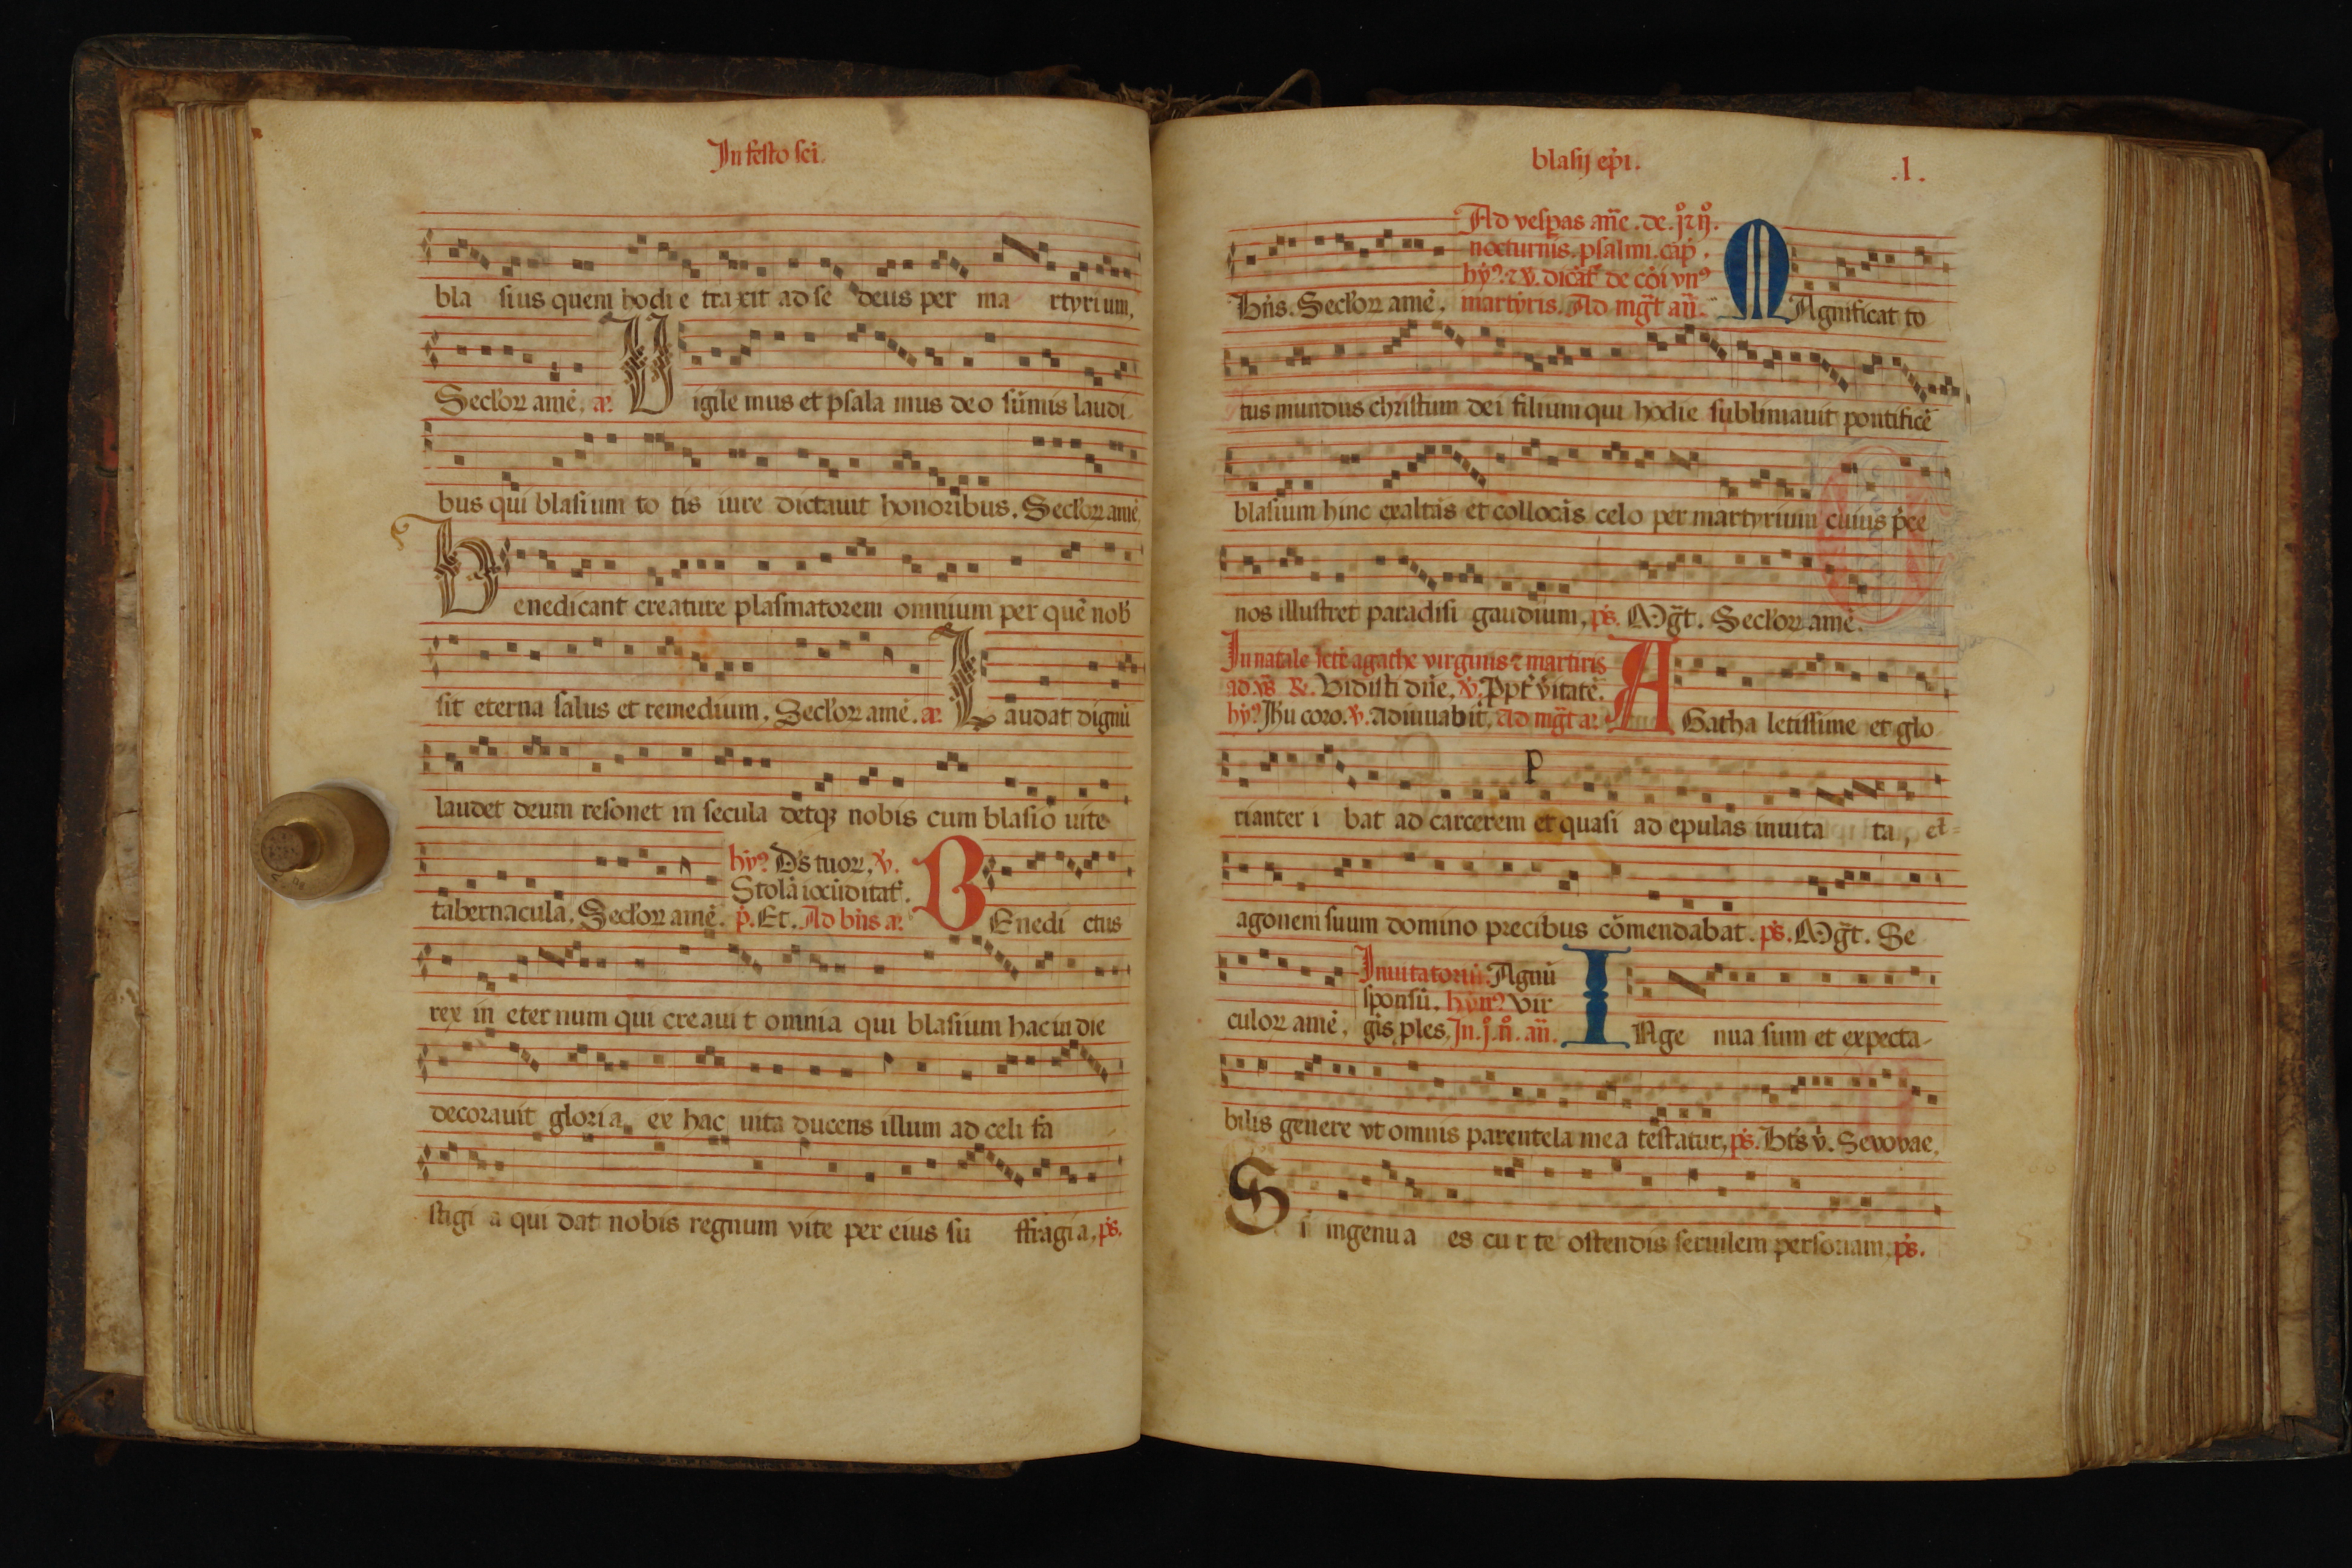 In festo sci.
bla sius quem hodi e traxit ad se deus per ma rtyrium,
Sećloꝝ amē, a᷒. V igile mus et psala mus deo sūmis laudi
bus qui blasium to tis iure dictauit honoribus. Sećloꝝ amē
B enedicant creature plasmatorem omnium per quē nob̄
sit eterna salus et remedium. Sećloꝝ amē. a᷒. L audat dignū
laudet deum resonet in secula detqꝫ nobis cum blasio uite
hȳ? D̄s tuoꝝ, v̇.
Stolā iocūditat᷒.
tabernacula, Sećloꝝ amē. p̄. Et. Ad bn̄s a᷒. B Enedi ctus
rex in eter num qui creaui t omnia qui blasium hac in die
decorauit gloria, ex hac uita ducens illum ad celi fa
stigi a qui dat nobis regnum vite per eius su ffragia, p̄s.
blasij ep̄i. .l.
Ad vesp̄as an̄e. de. j̊ ⁊ ij̊.
nocturnis. psalmi. cap̄.
hȳ? ⁊ v̇. dicāt᷒ de cōi vn᷒
Bn̄s. Sećloꝝ amē, martyris. Ad mḡt an̄. M Agnificat to
tus mundus christum dei filium qui hodie sublimauit pontificē
blasium hinc exaltās et collocās celo per martyrium cuius p̄ce
nos illustret paradisi gaudium, p̄s. Mḡt. Sećloꝝ amē.
In natale scē agathe virginis ⁊ martiris
ad v̄s ℟. Vidisti dn̄e, v̇. Ppt᷒ v̄itatē.
hȳ? Ihu coro. v̇. Adiuuabit, Ad mḡt a᷒. A Gatha letissime et glo
p
rianter i bat ad carcerem et quasi ad epulas inuita ta, et
agonem suum domino precibus cōmendabat. p̄s. Mḡt. Se
Inuitatoriū Agnū
sponsū. hȳn? Vir
culoꝝ amē, gis ples, In. j̊. n̊. an̄. I Nge nua sum et expecta-
bilis genere vt omnis parentela mea testatur, p̄s. Bt̄s v̇. Sevovae,
S i ingenua es cu r te ostendis seruilem personam, p̄s.